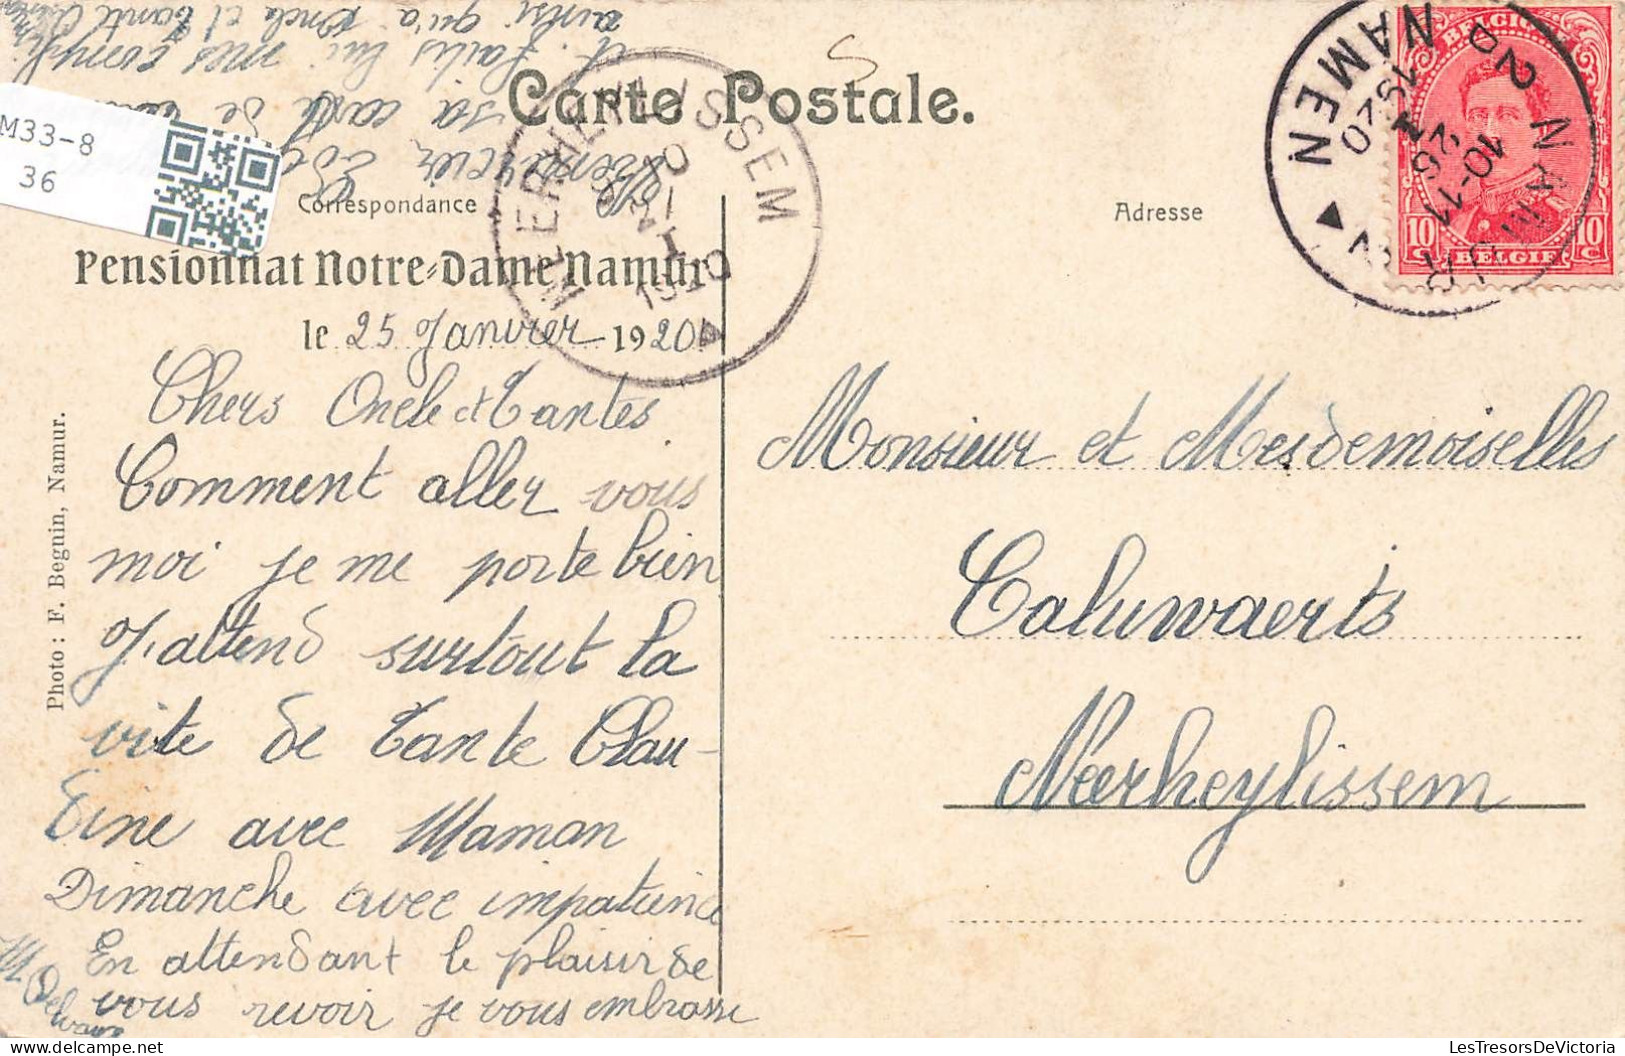 M33-8
36
Carte Postale.
Correspondance
Adresse
Pensionnat Notre-Dame Namur
le 25 Janvier 1920
Chers Oncle et Tantes
Comment aller vous
moi je me porte bien
J'attend surtout la
vite de Tante Clau-
tine avec Maman
Dimanche avec impatience
En attendant le plaisir de
vous revoir je vous embrasse
M Delvaux
Remercier
sa carte de
et faits lui mes compli
ainsi qu'a Oncle et tante
Photo : F. Begnin, Namur.
Monsieur et Mesdemoiselles
Caluwaerts
Neerheylissem
NEERHEYLISSEM
1920
NAMUR
NAMEN
10-11
26 I
1920
BELGIQUE
10 c
10 c
BELGIË
LesTresorsDeVictoria